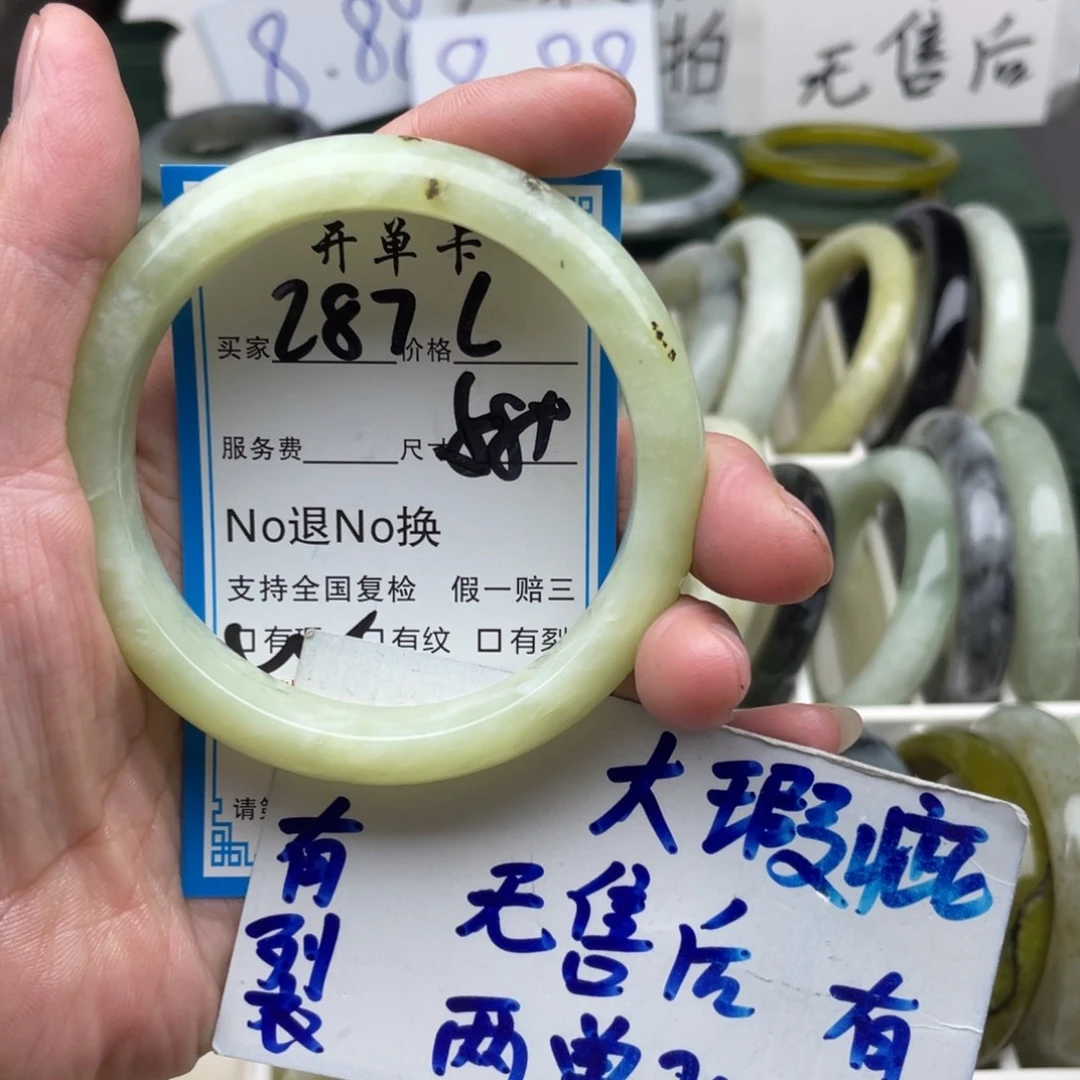 8.88
拍
无售后
开单卡
买家 287 价格 L
服务费 尺寸 58+
No退No换
支持全国复检 假一赔三
有瑕 有纹 有裂
请
大瑕疵
有裂
无售后
有
两单